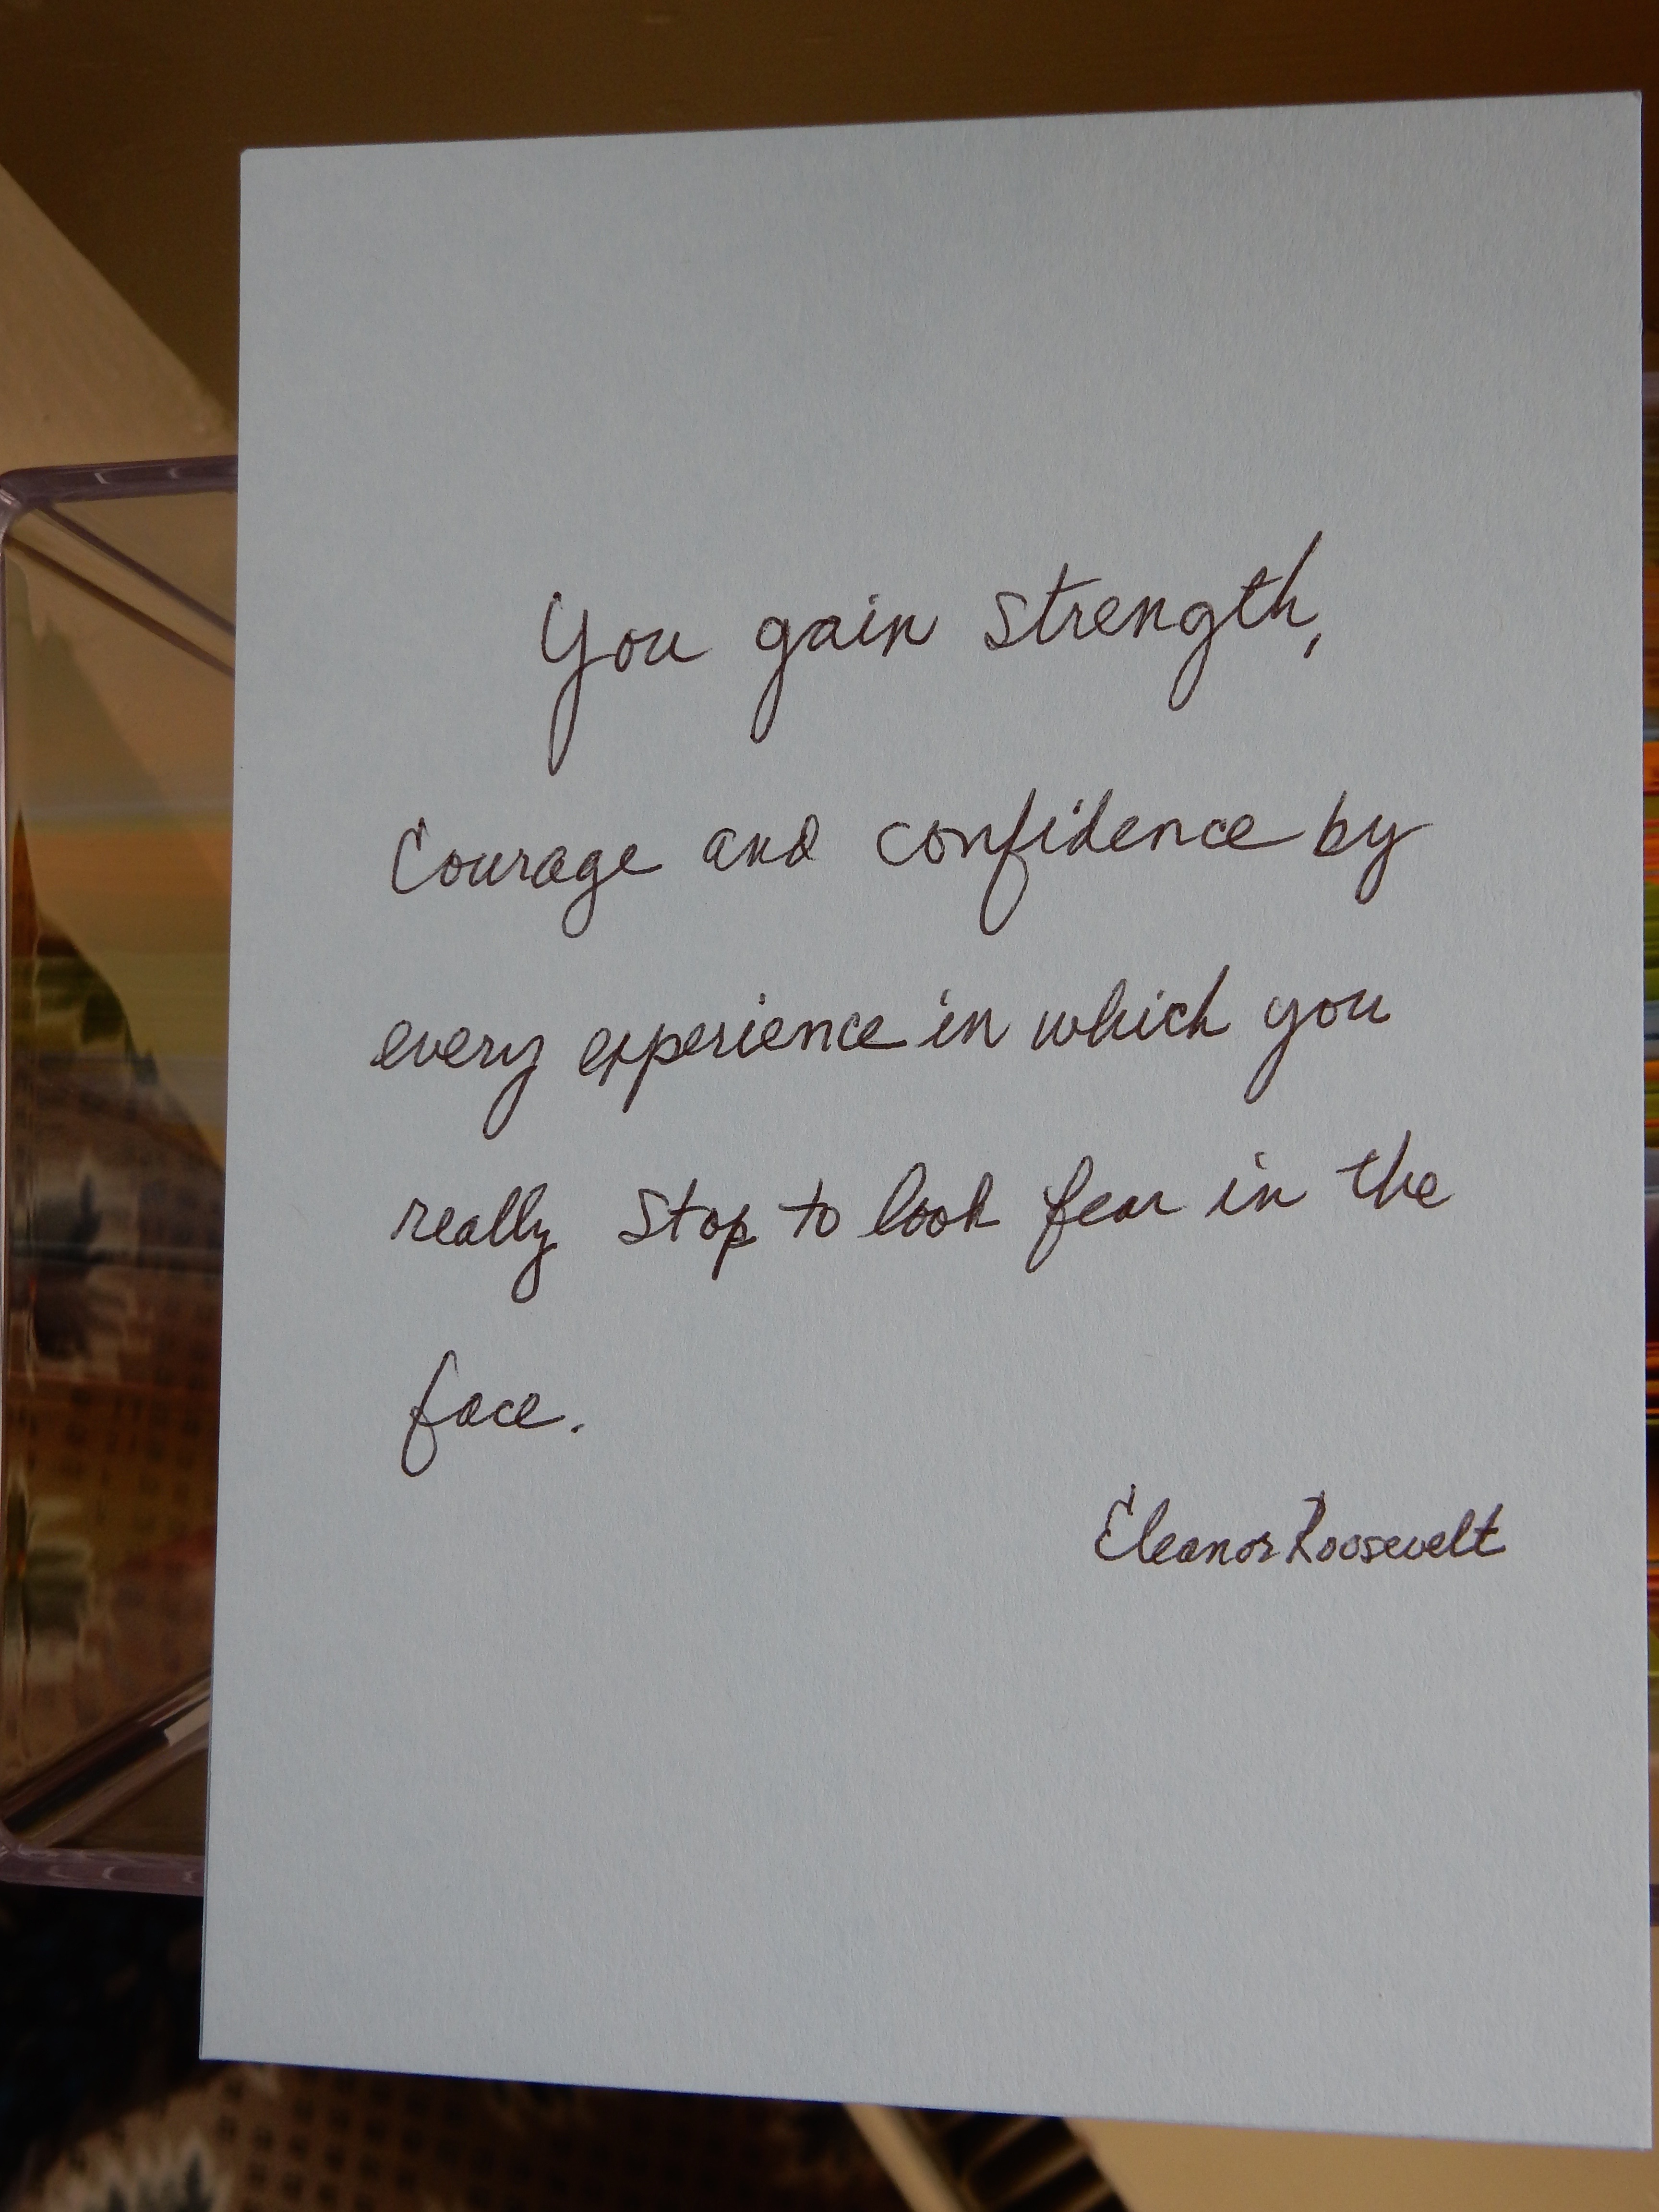 You gain strength,
Courage and confidence by
every experience in which you
really stop to look fear in the
face.
Eleanor Roosevelt